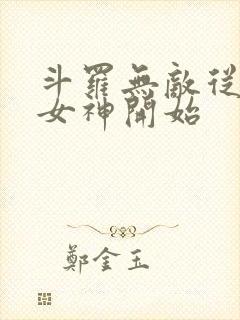 斗羅無敵從
女神開始
鄭金玉